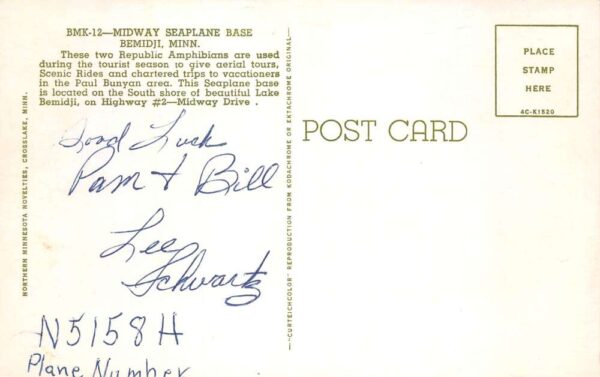 BMK-12—MIDWAY SEAPLANE BASE
BEMIDJI, MINN.
These two Republic Amphibians are used
during the tourist season to give aerial tours,
Scenic Rides and chartered trips to vacationers
in the Paul Bunyan area. This Seaplane base
is located on the South shore of beautiful Lake
Bemidji, on Highway #2—Midway Drive .
Good Luck
Pam + Bill
Lee
Schwartz
N5158H
Plane Number
NORTHERN MINNESOTA NOVELTIES, CROSSLAKE, MINN.
"CURTEICHCOLOR" REPRODUCTION FROM KODACHROME OR EKTACHROME ORIGINAL
POST CARD
PLACE
STAMP
HERE
4C-K1520